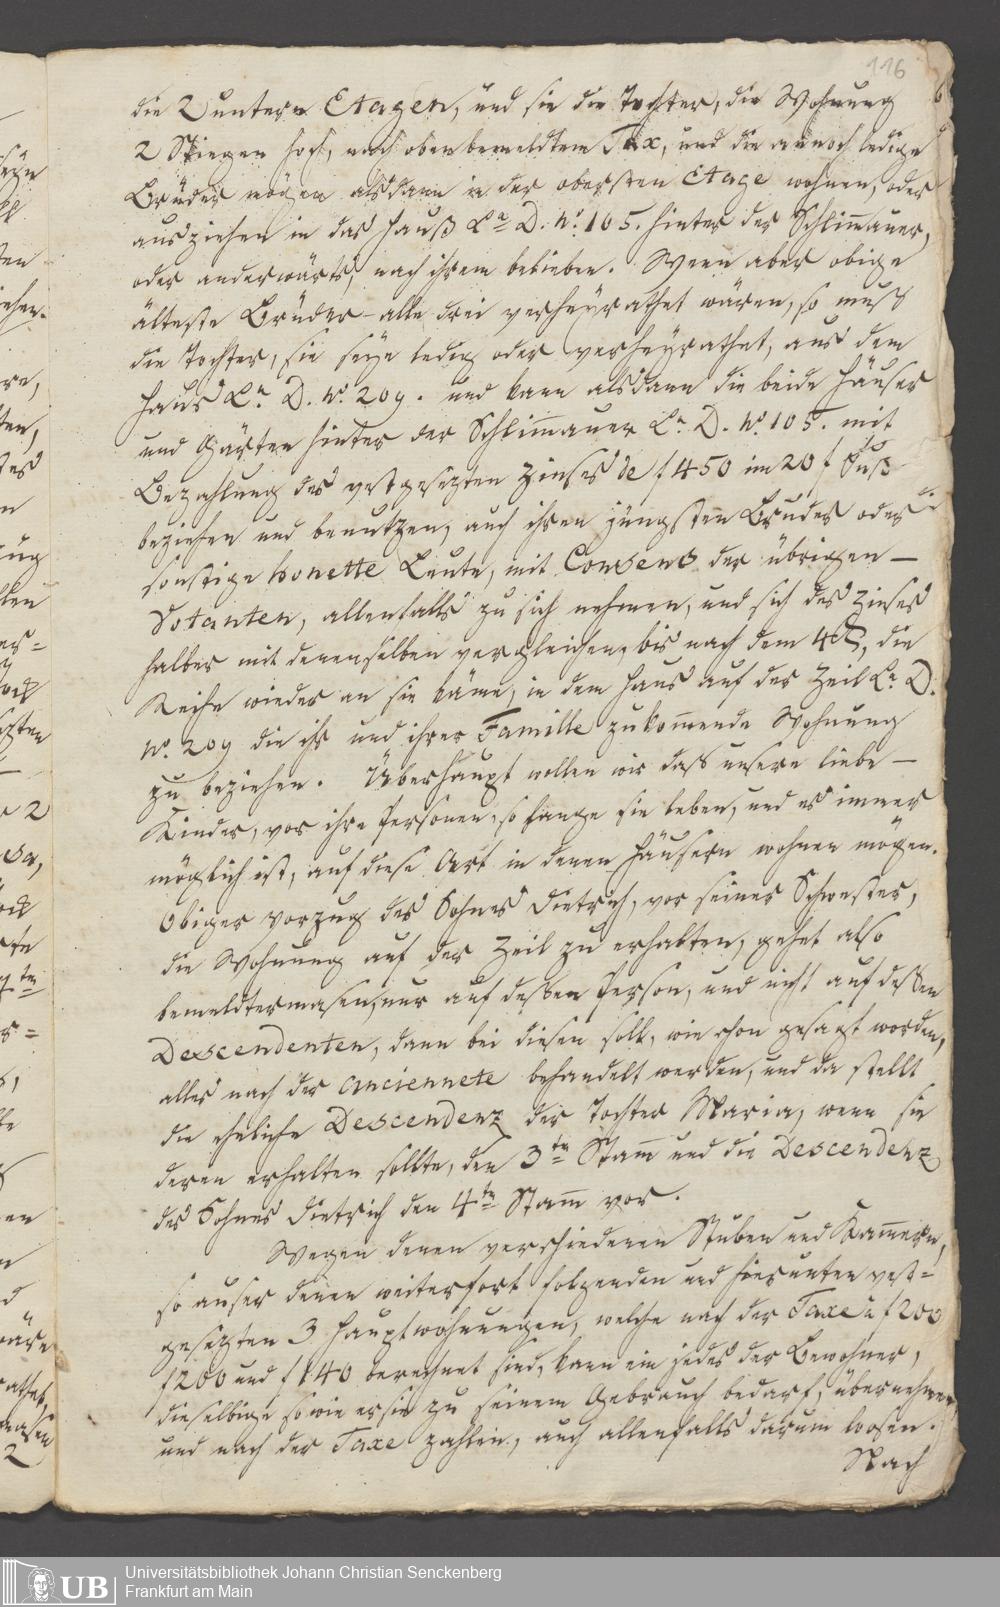 116
die 2 untern Etagen, und sie die Tochter, die Wohnung
2 Stiegen hoch, nach obenbemeldtem Tax, und die annoch ledige
Brüder mögen alsdann in der obersten Etage wohnen, oder
ausziehen in das Hauß La. D. No. 105. hinter der Schlimmauer,
oder anderwärts, nach ihrem belieben. Wenn aber obige
älteste Brüder alle drei verheyrathet wären, so muß
die Tochter, sie seye ledig oder verheyrathet, aus dem
Haus La. D. No. 209. und kann alsdann die beide Häuser
und Gärten hinter der Schlimmauer La. D. No. 105. mit
Bezahlung des vestgesezten Zinses de f 450 im 20 f Fuß
beziehen und benutzen, auch ihren jüngsten Bruder oder
sonstige honette Leute, mit Consens der übrigen –
Votanten, allenfalls zu sich nehmen, und sich des Zinses
halber mit denenselben vergleichen, bis nach dem 4ten, die
Reihe wieder an sie käme, in dem Haus auf der Zeil La. D.
No. 209 die ihr und ihrer Famille zukommende Wohnung
zu beziehen. Überhaupt wollen wir dass unsere liebe –
Kinder, vor ihre Personen, so lange sie leben, und es immer
möglich ist, auf diese Art in denen Häusern wohnen mögen.
Obiger Vorzug des Sohnes Dietrich, vor seiner Schwester,
die Wohnung auf der Zeil zu erhalten, gehet also
bemeldtermasen, nur auf dessen Person, und nicht auf dessen
Descendenten, dann bei diesen soll, wie schon gesagt worden,
alles nach der Anciennete behandelt werden, und da stellt
die eheliche Descendenz der Tochter Maria, wenn sie
deren erhalten sollte, den 3ten Stamm und die Descendenz
des Sohnes Dietrich den 4ten Stamm vor.
Wegen denen verschiedenen Stuben und Kammern,
so auser denen weiterfort folgenden und hierunten vest=
gesezten 3 Hauptwohnungen, welche nach der Taxe à f 200
f 200 und f 140 berechnet sind, kann ein jedes der Bewohner,
dieselbige so wie er sie zu seinem Gebrauch bedarf, übernehmen
und nach der Taxe zahlen, auch allenfalls darum loosen.
Nach
UB
Universitätsbibliothek Johann Christian Senckenberg
Frankfurt am Main